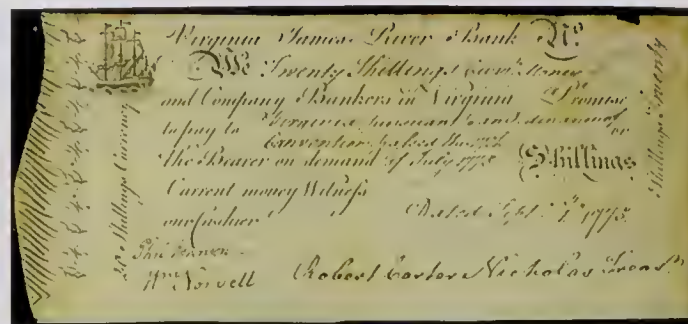 Virginia James River Bank No.
We Twenty Shillings Curr.t Money
and Company Bankers in Virginia Promise
to pay to Virginia pursuant and or
Convention passed the
the Bearer on demand of July 1775 (Shillings
Current money Witness
our Cashier Dated Sept. 1775
Wm Norvell Robert Carter Nicholas Treasr.
20 Shillings Currency
Shillings Twenty